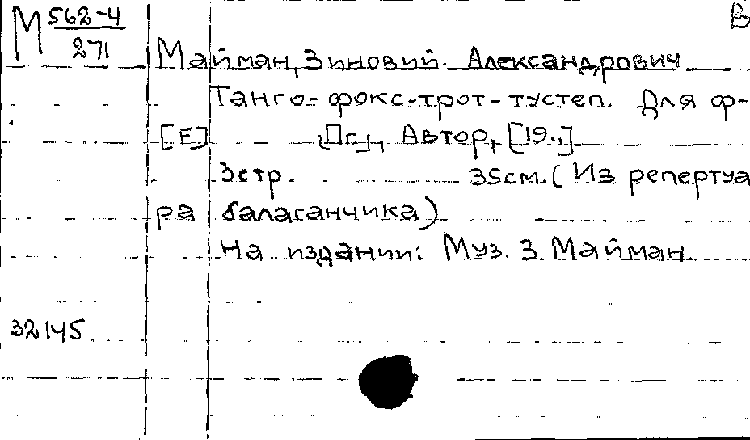 М 562-4
271
В
Майман, Зиновий Александрович
Танго-фокс-трот-тустеп. Для ф-
[Е] [Пг.], Автор, [19..]
3стр. 35см. (Из репертуа
ра балаганчика)
На издании: Муз. З. Майман
32145